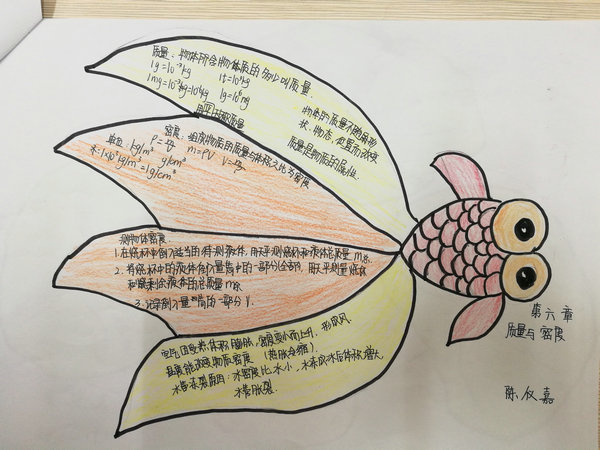 质量：物体所含物体质的多少叫质量.
1g=10⁻³kg 1t=10³kg
1mg=10⁻³g=10⁻⁶kg 1g=10⁶mg
用天平测质量
物体的质量不随自身形
状,物态,位置而改变
质量是物质的属性.
密度：组成物质的质量与体积之比为密度
ρ=m/v m=ρV V=m/ρ
单位：kg/m³ g/cm³
水=1×10³kg/m³=1g/cm³
测物体密度.
1.在烧杯中倒入适当的待测液体，用天平测烧杯和液体总质量m总.
2.将烧杯中的液体倒入量筒中的一部分(全部)，用天平测量烧杯
和剩余液体的总质量m余
3.记录倒入量筒的一部分V.
空气因受热体积膨胀,密度变小而上升，形成风.
温度能改变物质密度（热胀冷缩）.
水管冻裂原因：冰密度比水小，水冻成冰后体积增大
水管胀裂.
第六章
质量与密度
陈仪嘉